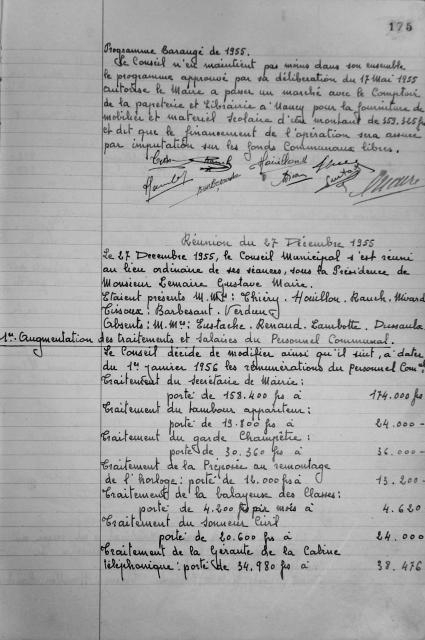 175
Programme Barangé de 1955.
Le Conseil n'en maintient pas moins dans son ensemble
le programme approuvé par sa délibération du 17 Mai 1955
autorise le Maire à passer un marché avec le Comptoir
de la papeterie et librairie à Nancy pour la fourniture de
mobilier et matériel scolaire d'un montant de 359.365 frs
et dit que le financement de l'opération sera assuré
par imputation sur les fonds Communaux libres.
Réunion du 27 Décembre 1955
Le 27 Decembre 1955, le Conseil Municipal s'est réuni
au lieu ordinaire de ses séances, sous la Présidence de
Monsieur Lemaire Gustave Maire.
Etaient présents M.Mrs: Thiéry. Houillon. Rauch. Mirard
Cisoux. Barbesant. Verdun
Absents: M.Mrs: Eustache. Renaud. Lambotte. Dussaula
1re Augmentation des traitements et salaires du Personnel Communal.
Le Conseil décide de modifier ainsi qu'il suit, à dater
du 1er janvier 1956 les rémunérations du personnel Comal
Traitement du Secrétaire de Mairie:
porté de 158.400 frs à 174.000 frs
Traitement du tambour appariteur:
porté de 19.800 frs à 24.000 -
Traitement du garde Champêtre:
porté de 30.360 frs à 36.000 -
Traitement de la Préposée au remontage
de l'horloge: porté de 12.000 frs à 13.200 -
Traitement de la balayeuse des Classes:
porté de 4.200 frs par mois à 4.620
Traitement du Sonneur Civil
porté de 20.600 frs à 24.000
Traitement de la Gérante de la Cabine
téléphonique: porté de 34.980 frs à 38.476